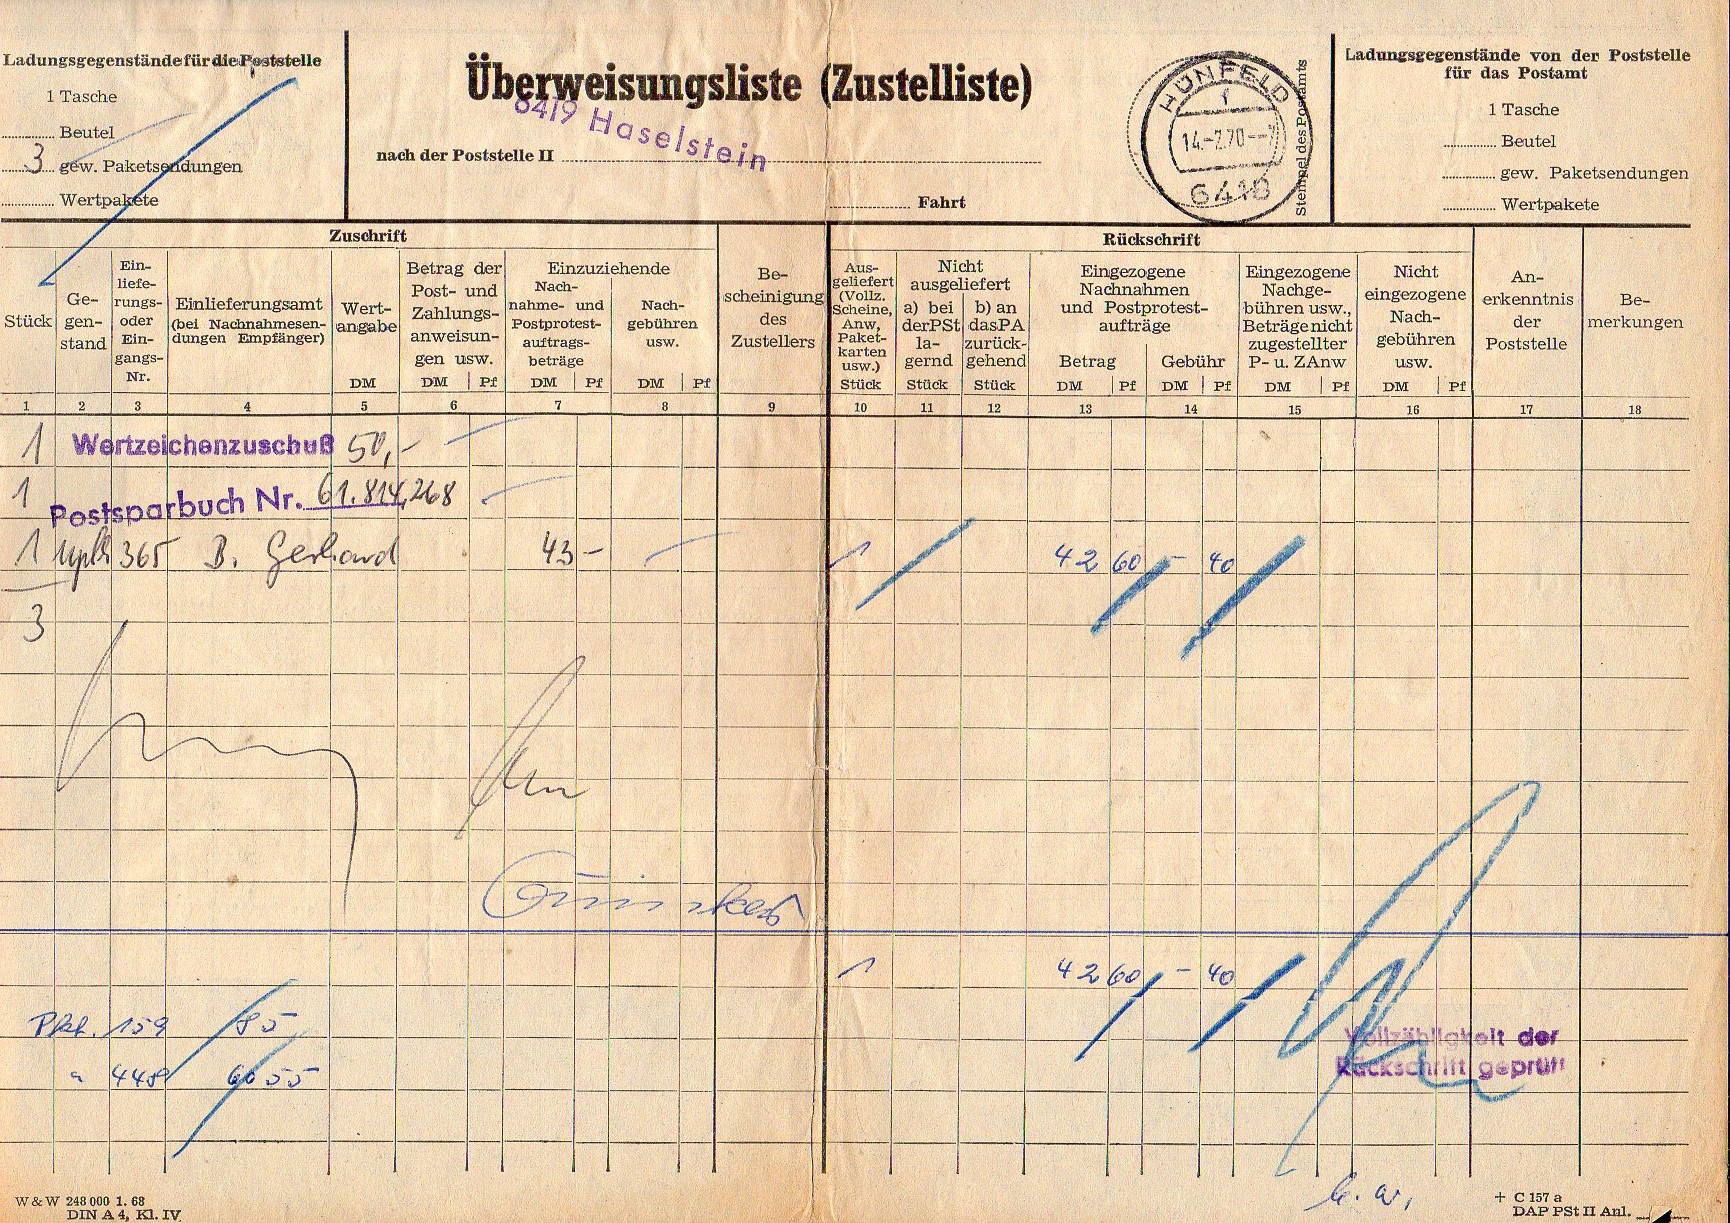 Ladungsgegenstände für die Poststelle
1 Tasche
Beutel
3 gew. Paketsendungen
Wertpakete
Überweisungsliste (Zustelliste)
6419 Haselstein
nach der Poststelle II
Fahrt
HÜNFELD
1
6418
Stempel des Postamts
Ladungsgegenstände von der Poststelle
für das Postamt
1 Tasche
Beutel
gew. Paketsendungen
Wertpakete
Zuschrift
Rückschrift
Stück
Ge-
gen-
stand
Ein-
liefe-
rungs-
oder
Ein-
gangs-
Nr.
Einlieferungsamt
(bei Nachnahmesen-
dungen Empfänger)
Wert-
angabe
DM
Betrag der
Post- und
Zahlungs-
anweisun-
gen usw.
DM Pf
Einzuziehende
Nach-
nahme- und
Postprotest-
auftrags-
beträge
DM Pf
Nach-
gebühren
usw.
DM Pf
Be-
scheinigung
des
Zustellers
Aus-
geliefert
(Vollz.
Scheine,
Anw,
Paket-
karten
usw.)
Stück
Nicht
ausgeliefert
a) bei
derPSt
la-
gernd
Stück
b) an
dasPA
zurück-
gehend
Stück
Eingezogene
Nachnahmen
und Postprotest-
aufträge
Betrag
DM Pf
Gebühr
DM Pf
Eingezogene
Nachge-
bühren usw.,
Beträge nicht
zugestellter
P- u. ZAnw
DM Pf
Nicht
eingezogene
Nach-
gebühren
usw.
DM Pf
An-
erkenntnis
der
Poststelle
Be-
merkungen
1 2 3 4 5 6 7 8 9 10 11 12 13 14 15 16 17 18
1 Wertzeichenzuschuß 50,-
1 Postsparbuch Nr. 61.814,268
1 365 B. Gerhard 43 - 1 42 60 - 40
3
1 42 60 - 40
Pkt. 159 85
" 448 60 55
Vollzähligkeit der
Rückschrift geprüft
W & W 248 000 1. 68
DIN A 4, Kl. IV
+ C 157 a
DAP PSt II Anl.